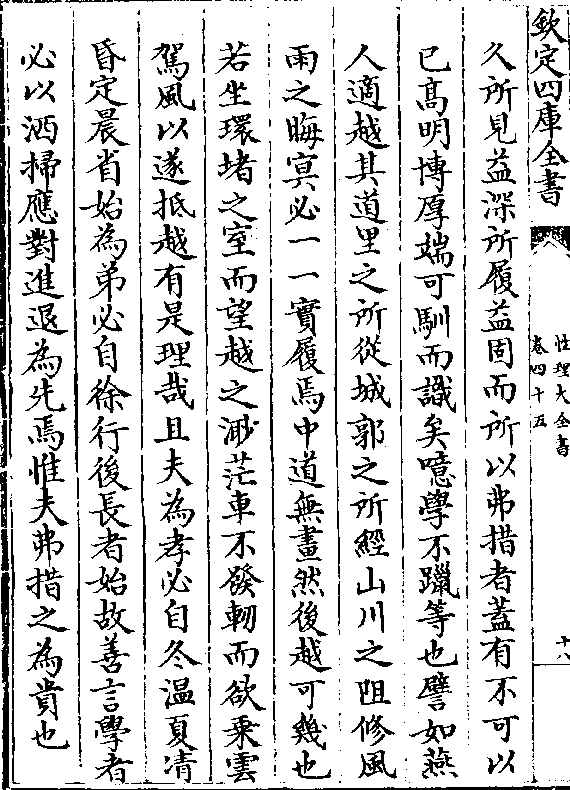 欽定四庫全書
性理大全書
卷四十五
十六
久所見益深所履益固而所以弗措者蓋有不可以
已髙明博厚端可馴而識矣噫學不躐等也譬如燕
人適越其道里之所從城郭之所經山川之阻修風
雨之晦冥必一一實履焉中道無畫然後越可幾也
若坐環堵之室而望越之渺茫車不發軔而欲乗雲
駕風以遂抵越有是理哉且夫為孝必自冬温夏凊
昏定晨省始為弟必自徐行後長者始故善言學者
必以洒掃應對進退為先焉惟夫弗措之為貴也